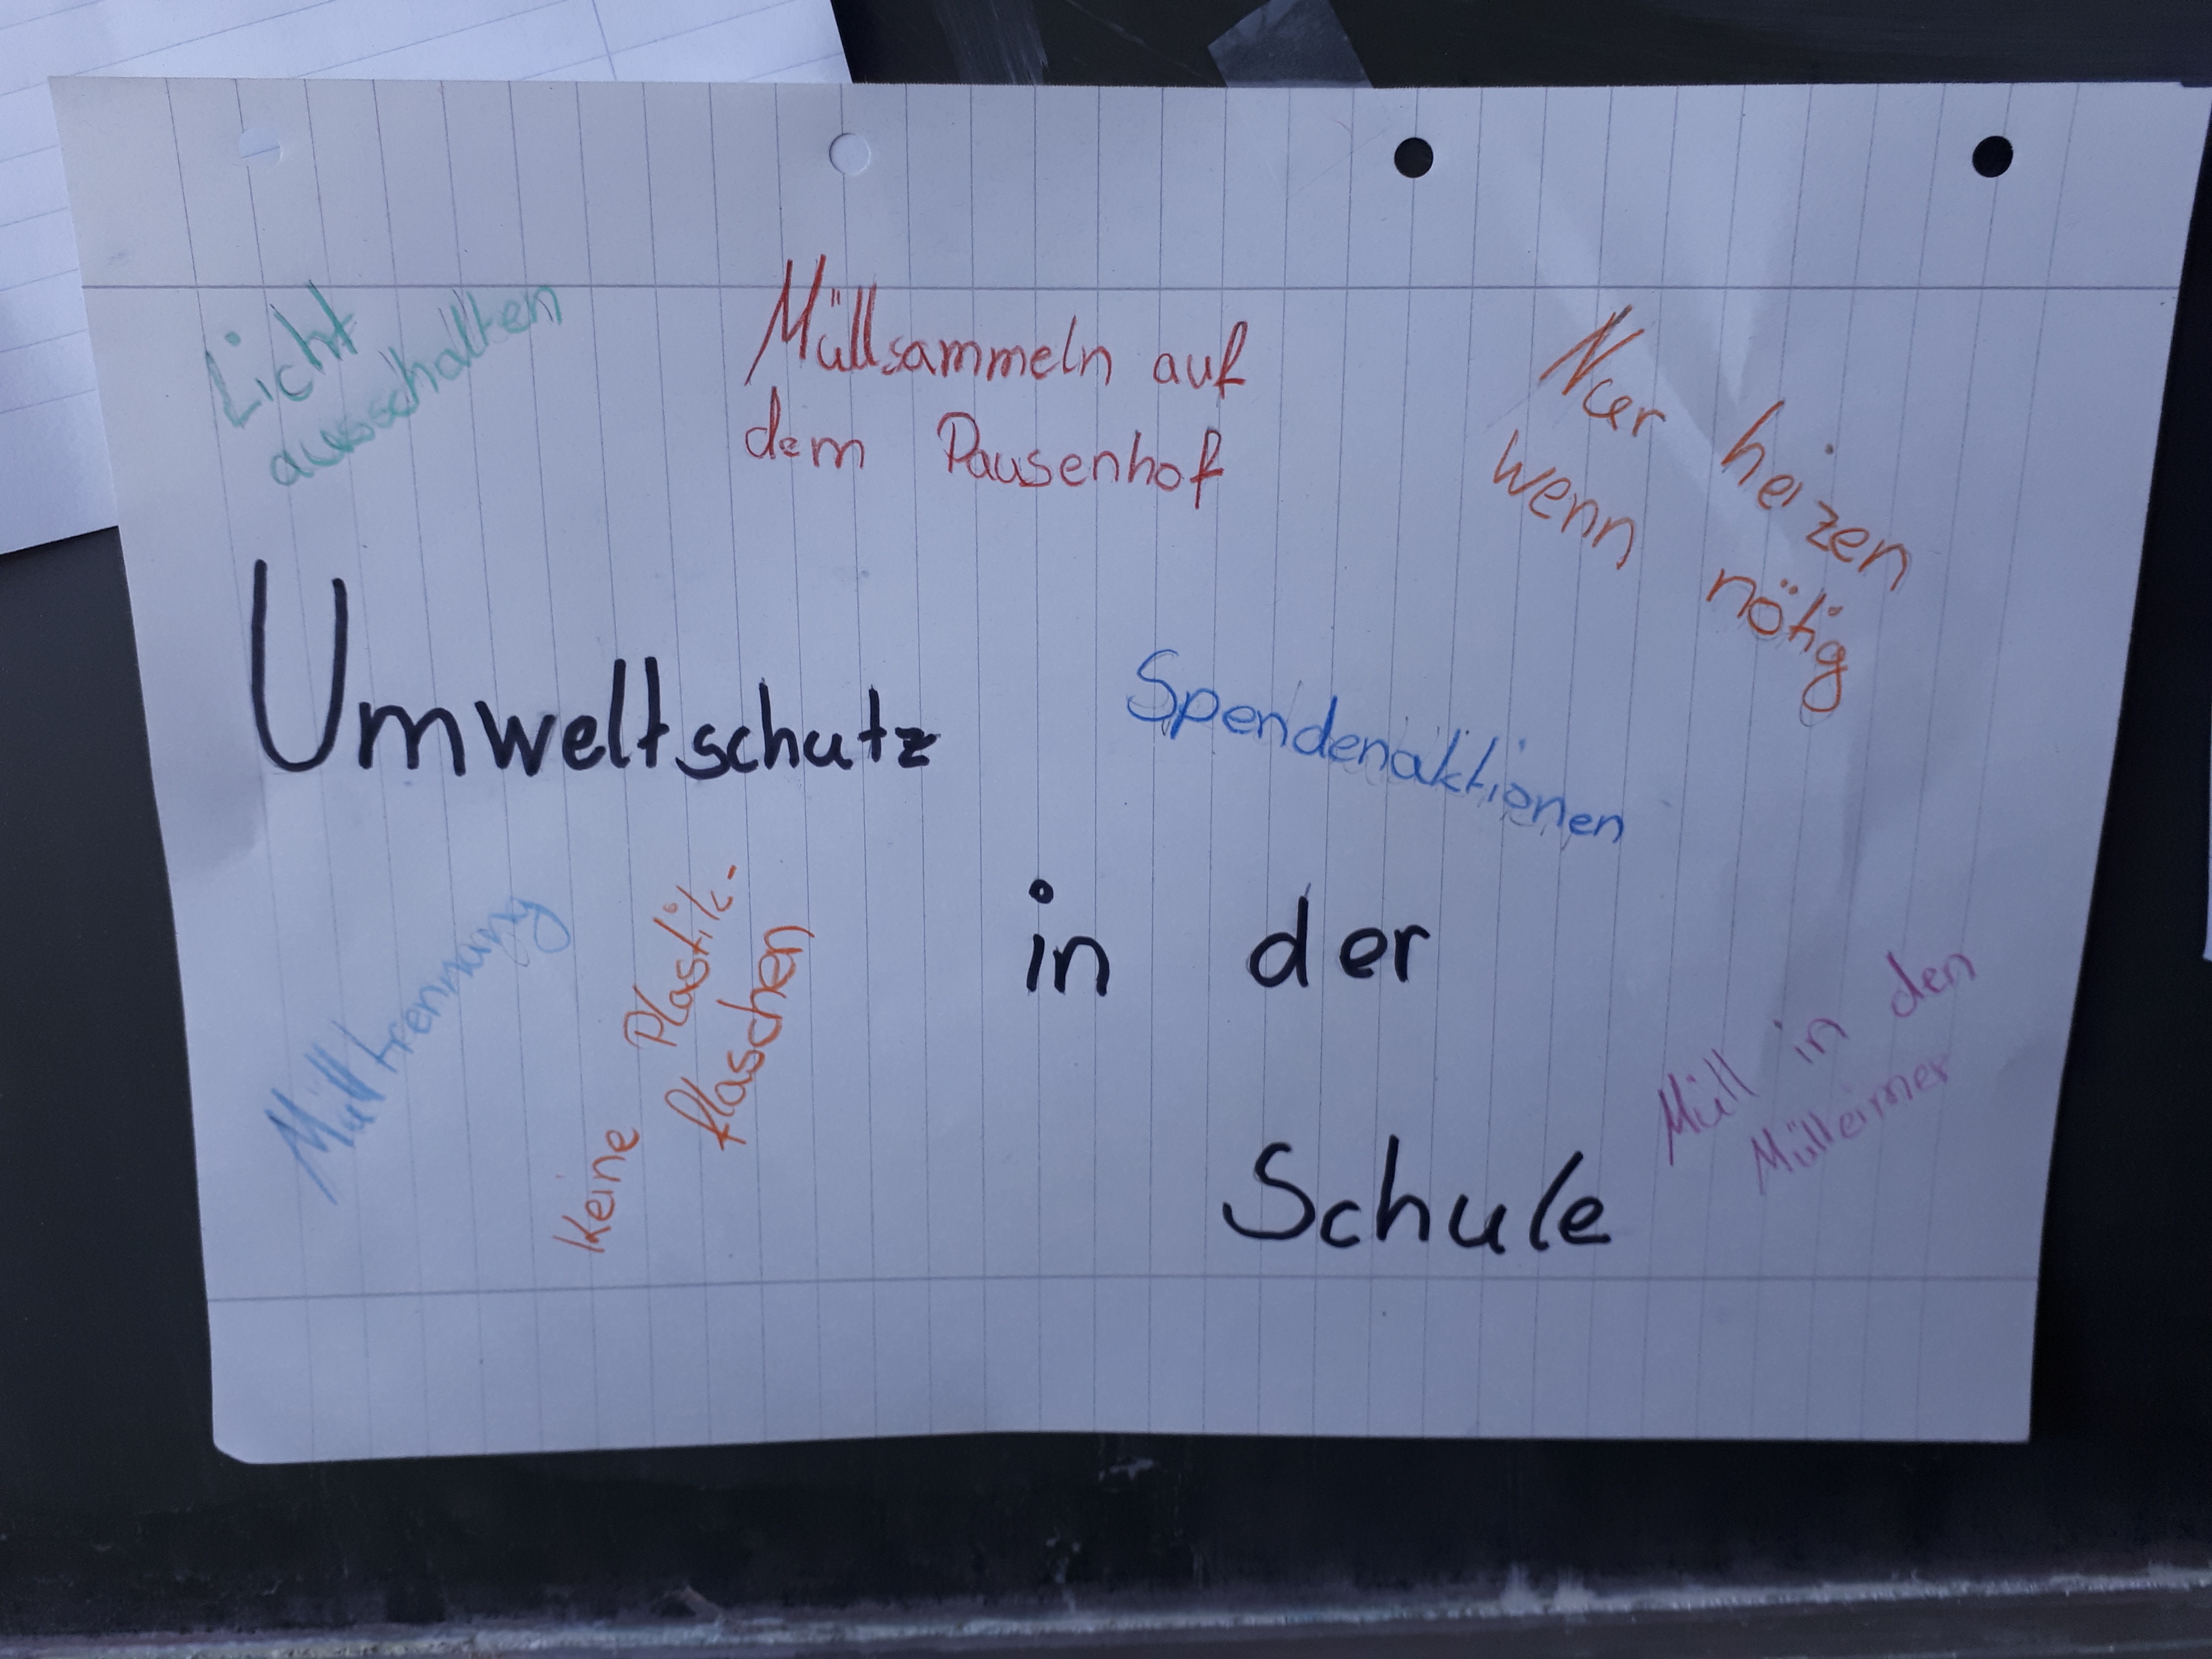 Licht
ausschalten
Müllsammeln auf
dem Pausenhof
Nur heizen
wenn nötig
Umweltschutz
Spendenaktionen
in der
Schule
Mülltrennung
Keine Plastik-
flaschen
Müll in den
Mülleimer